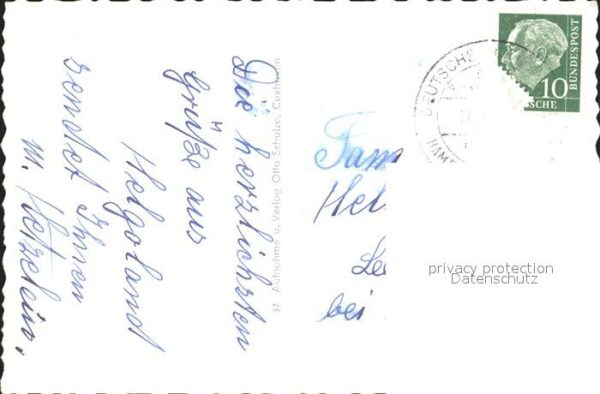 Die herzlichsten
Grüße aus
Helgoland
sendet Ihnen
M.
37 Aufnahme u. Verlag Otto Schulze, Cuxhaven
Fam
Hel
bei
DEUTSCHE
10
DEUTSCHE
BUNDESPOST
privacy protection
Datenschutz